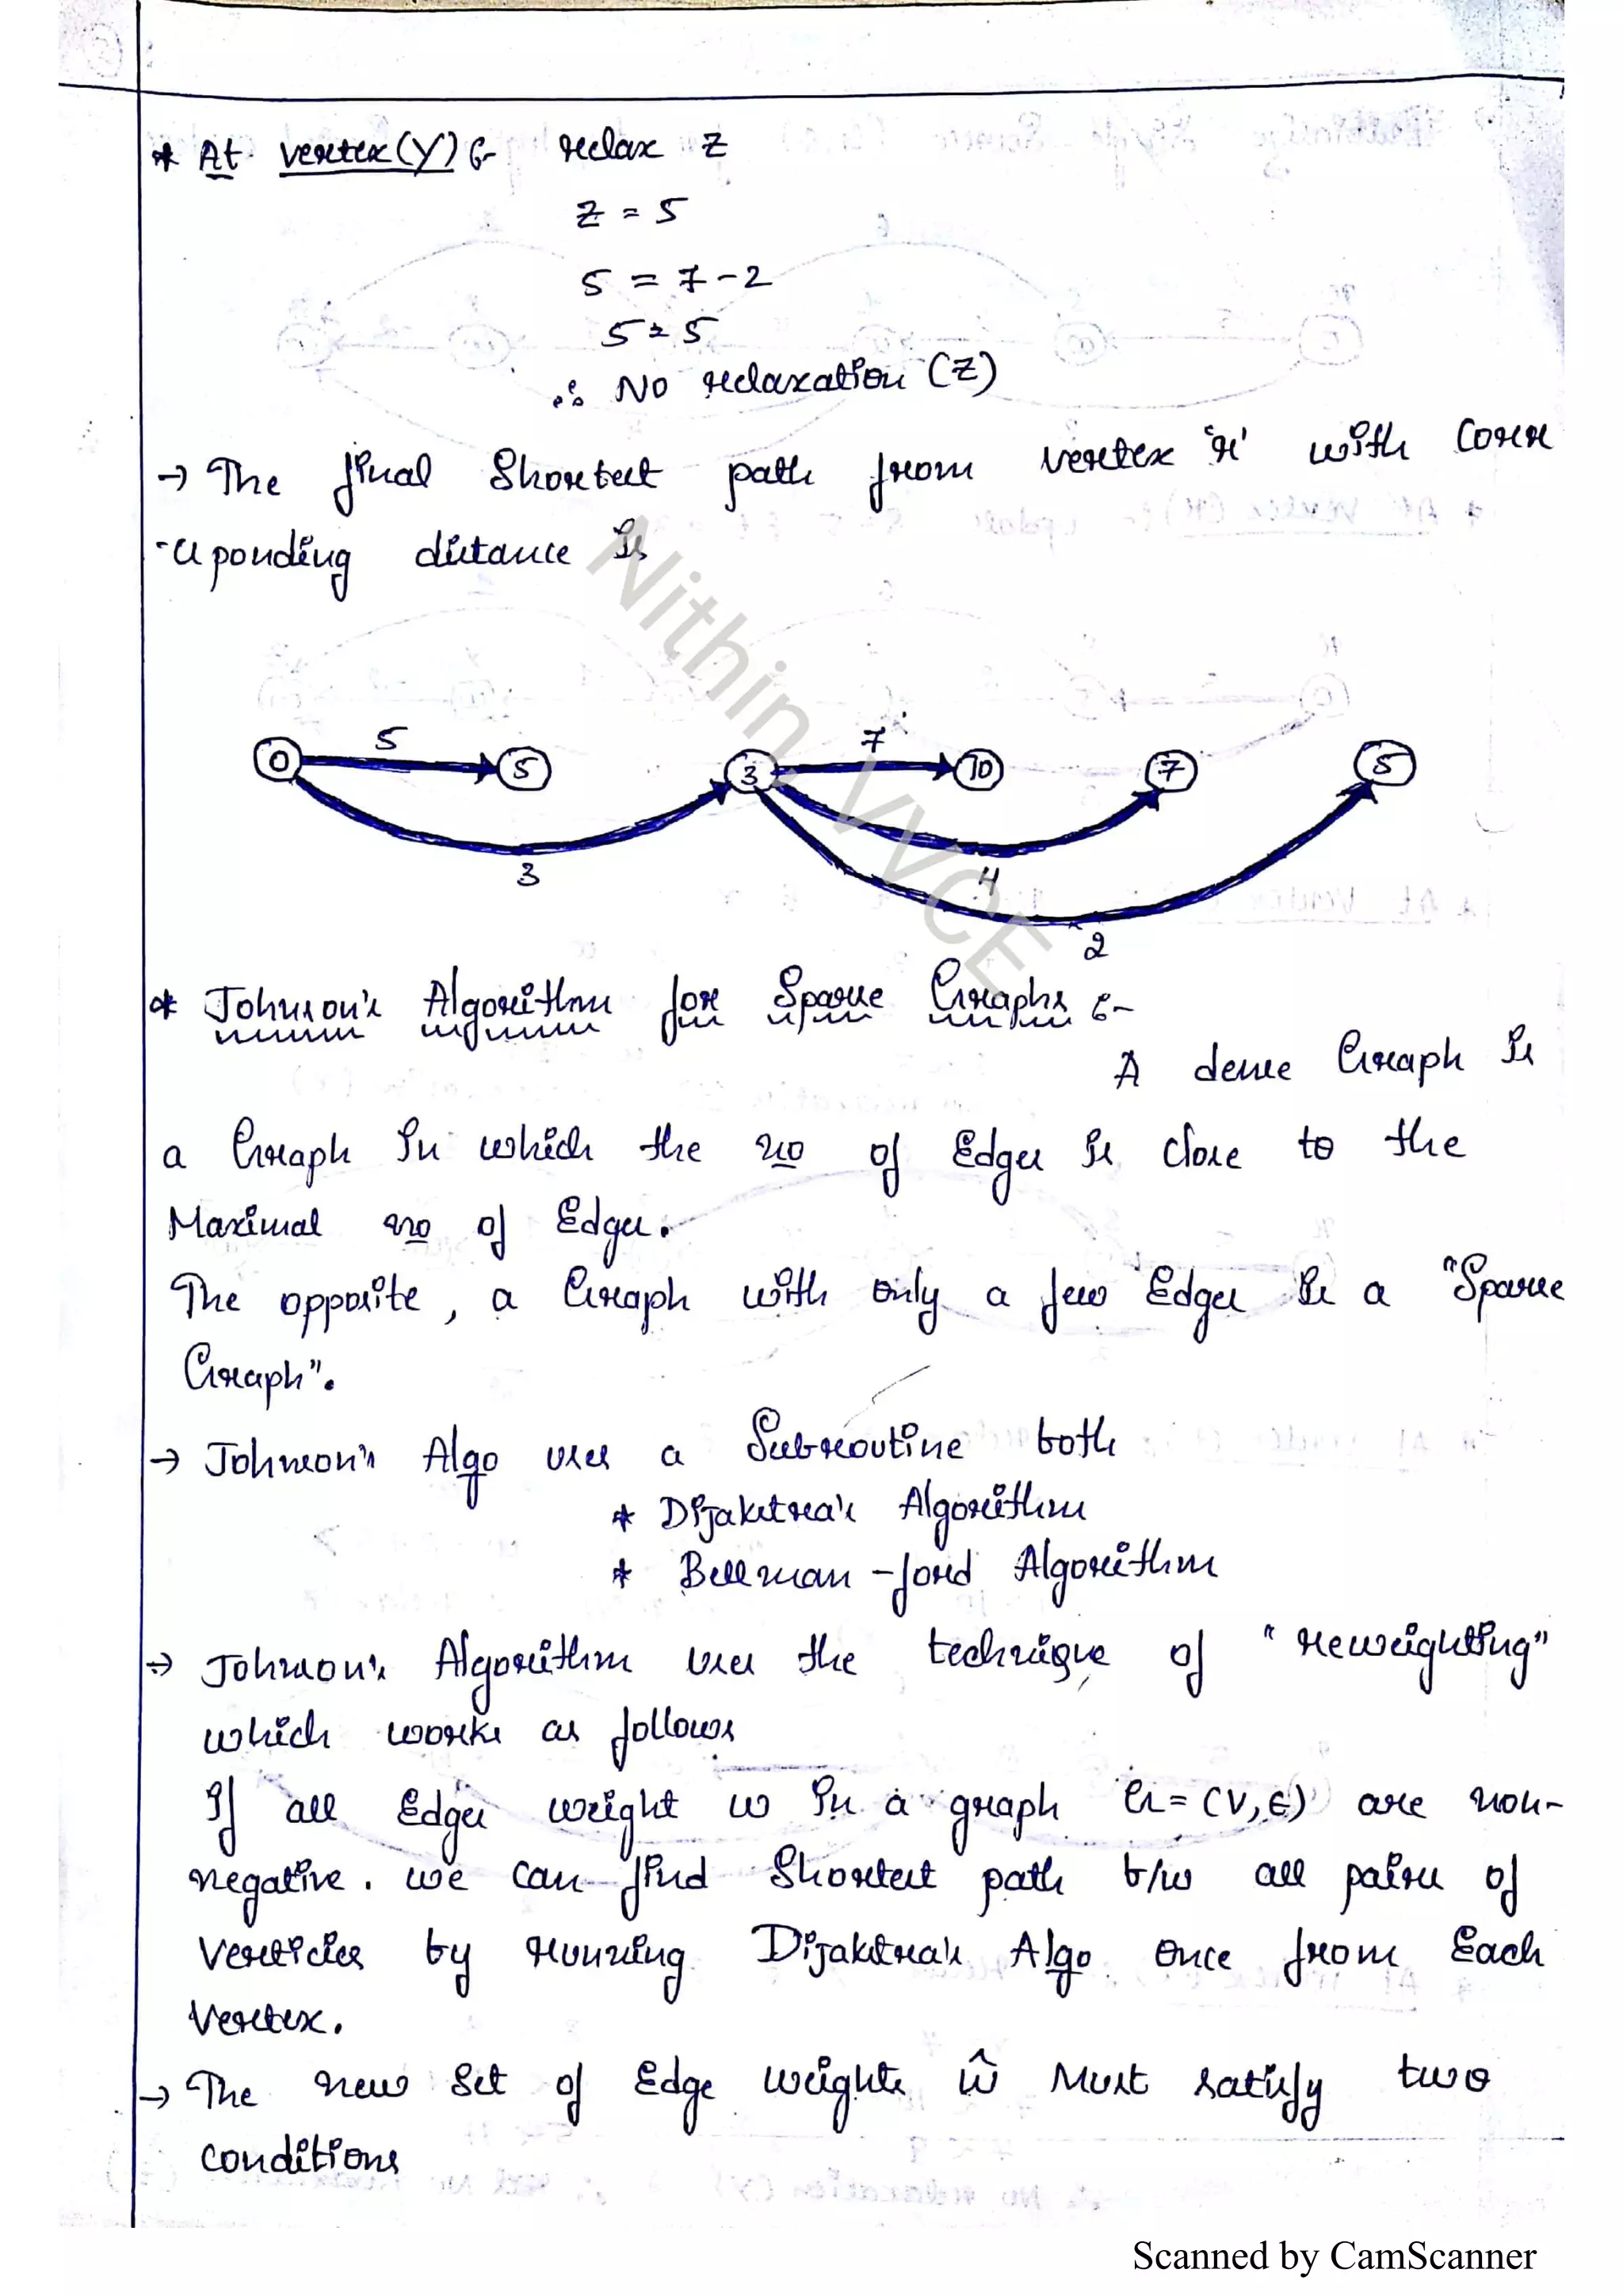 * At vertex(Y) :- relax Z
Z = 5
5 = 7-2
5 = 5
∴ No relaxation (Z)
→ The final Shortest path from vertex 'r' with Corr
-esponding distance is
0 5 5 3 7 10 7 5
3 4
2
* Johnson's Algorithm for Sparse Graphs :-
A dense Graph is
a Graph in which the no of Edges is close to the
Maximal no of Edges.
The opposite, a Graph with only a few Edges is a "Sparse
Graph".
→ Johnson's Algo uses a Subroutine both
* Dijakstra's Algorithm
* Bellman-ford Algorithm
→ Johnson's Algorithm uses the technique of "reweighting"
which works as follows
If all Edges weight w in a graph G = (V,E) are non-
negative. we can find Shortest path b/w all pairs of
Verticies by running Dijakstra's Algo once from Each
Vertex.
→ The new set of Edge weights ŵ Must satisfy two
conditions
Nithin, VVCE
Scanned by CamScanner